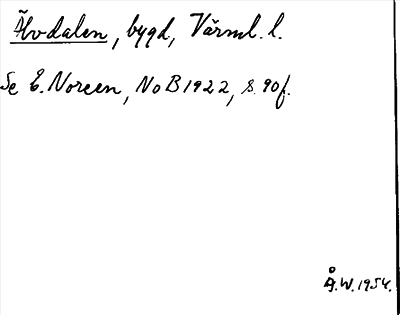 Älvdalen, bygd, Värml. l.
Se E. Noreen, NoB 1922, s. 90f.
Å.W. 1954.